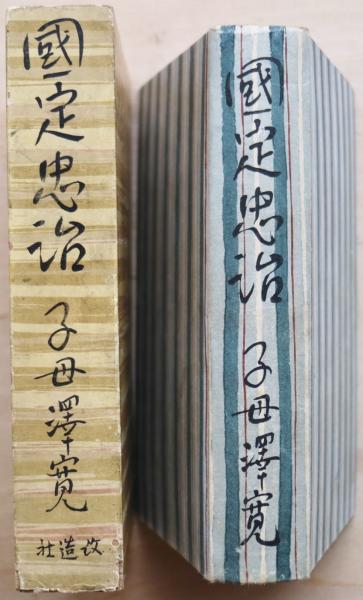 國定忠治
子母澤寛
改造社
國定忠治
子母澤寛